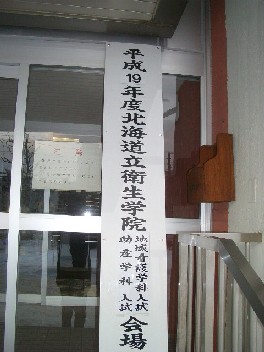 平成19年度北海道立衛生学院
地域看護学科入試
助産学科入試
会場